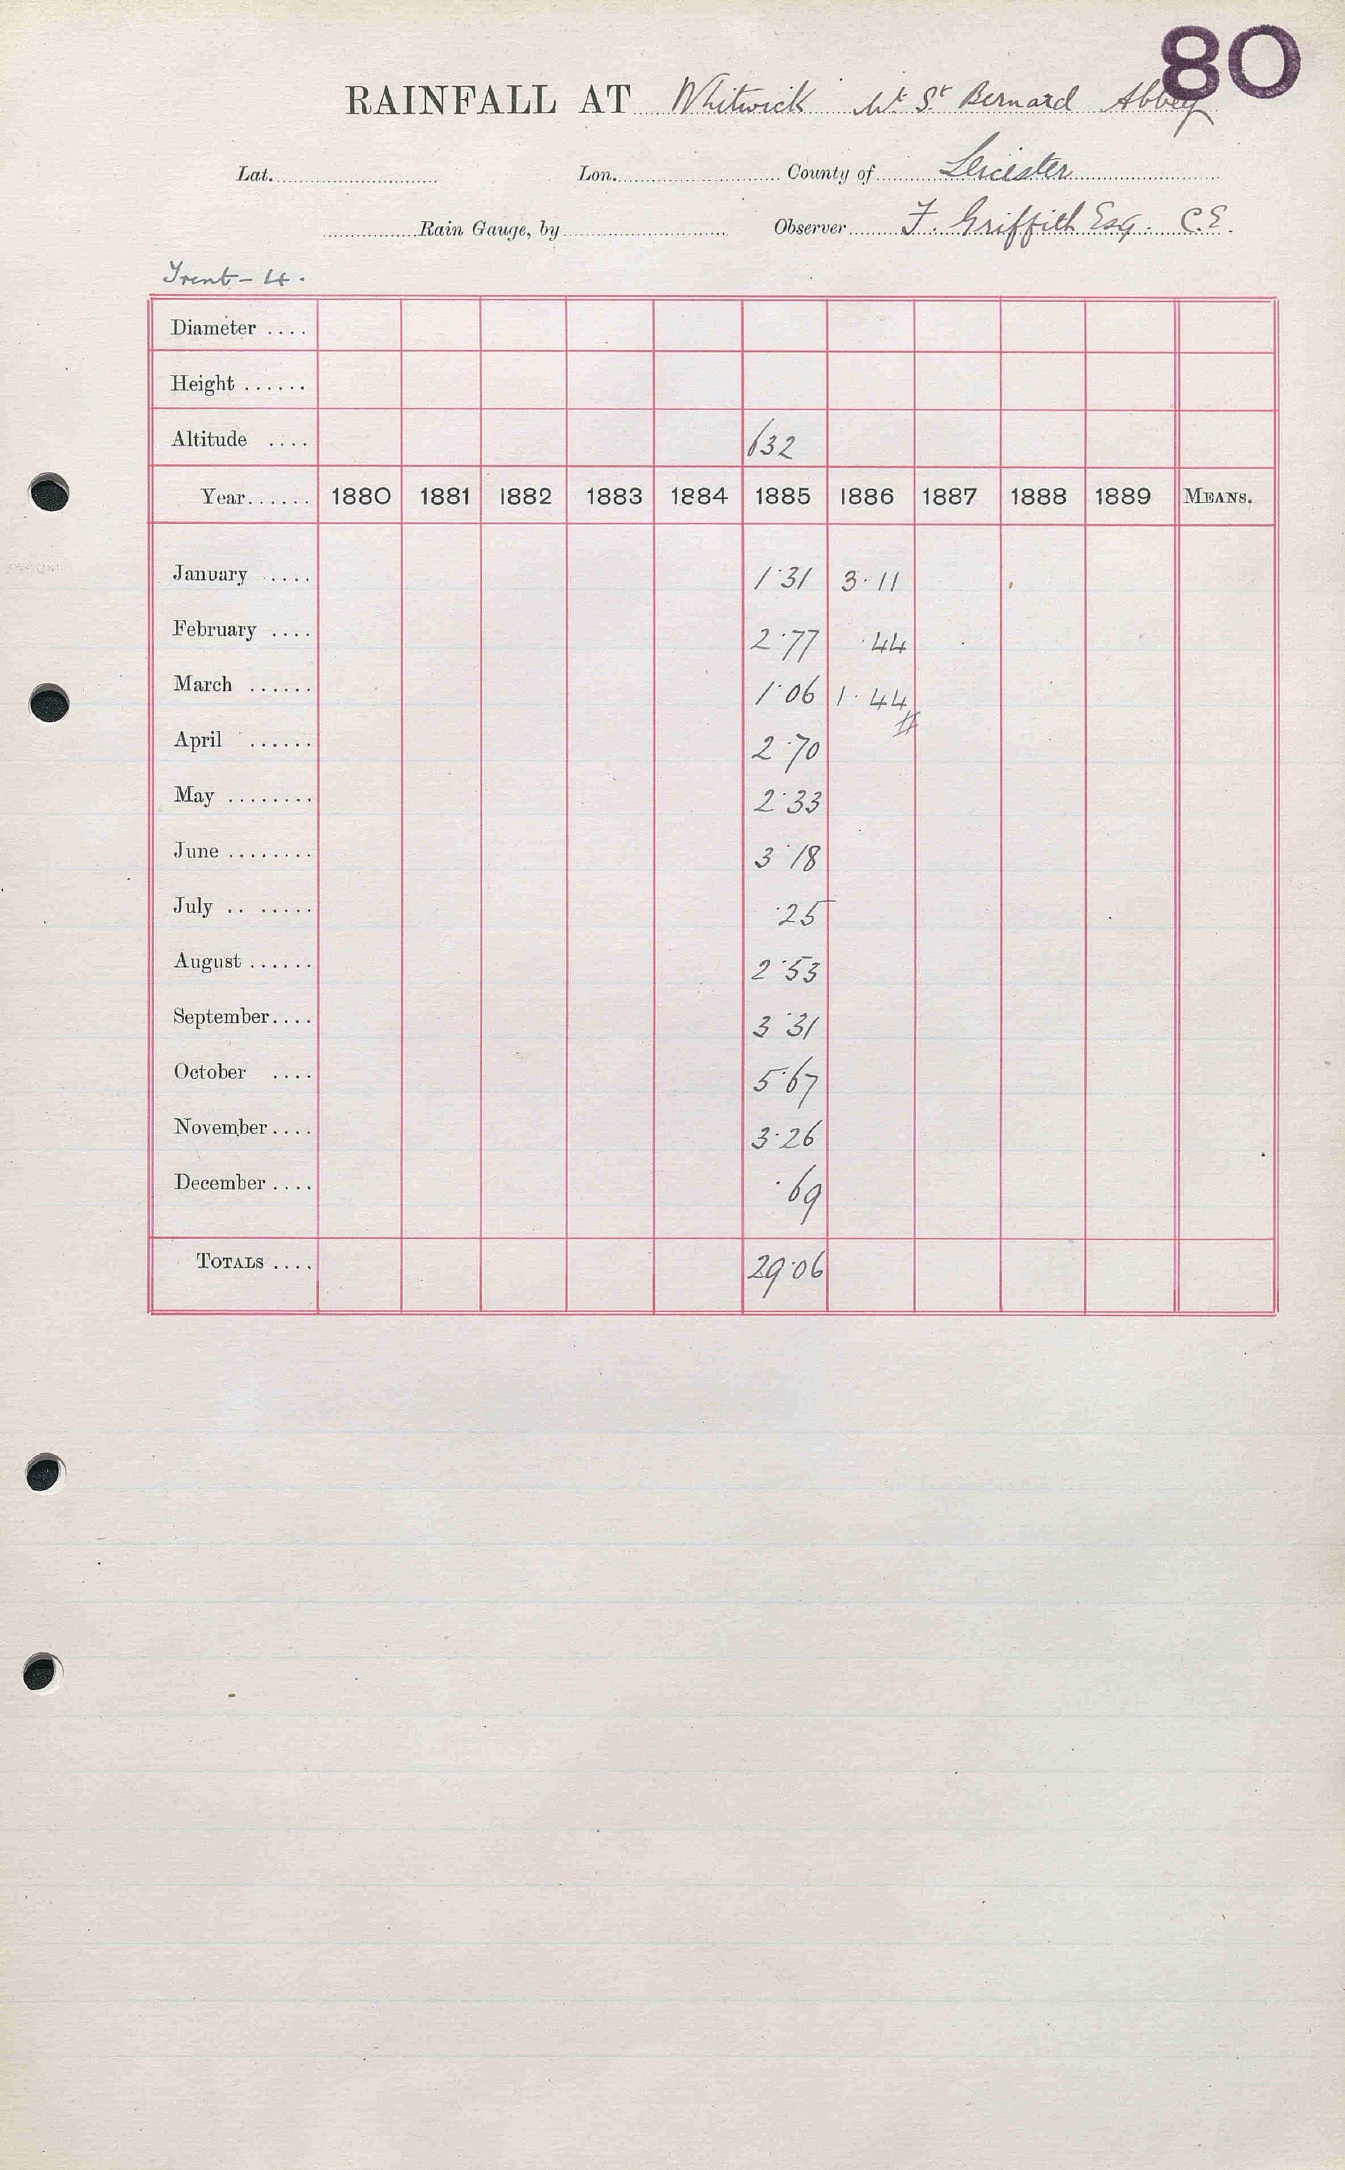 80
RAINFALL AT Whitwick Mt St Bernard Abbey
Lat. Lon. County of Leicester
Rain Gauge, by Observer F. Griffith Esq. C.E.
Trent - 4.
Diameter ....
Height ......
Altitude .... 632
Year...... 1880 1881 1882 1883 1884 1885 1886 1887 1888 1889 MEANS.
January .... 1.31 3.11
February .... 2.77 .44
March ...... 1.06 1.44
April ...... 2.70
May ........ 2.33
June ........ 3.18
July .. ..... .25
August ...... 2.53
September.... 3.31
October .... 5.67
November .... 3.26
December .... .69
TOTALS .... 29.06